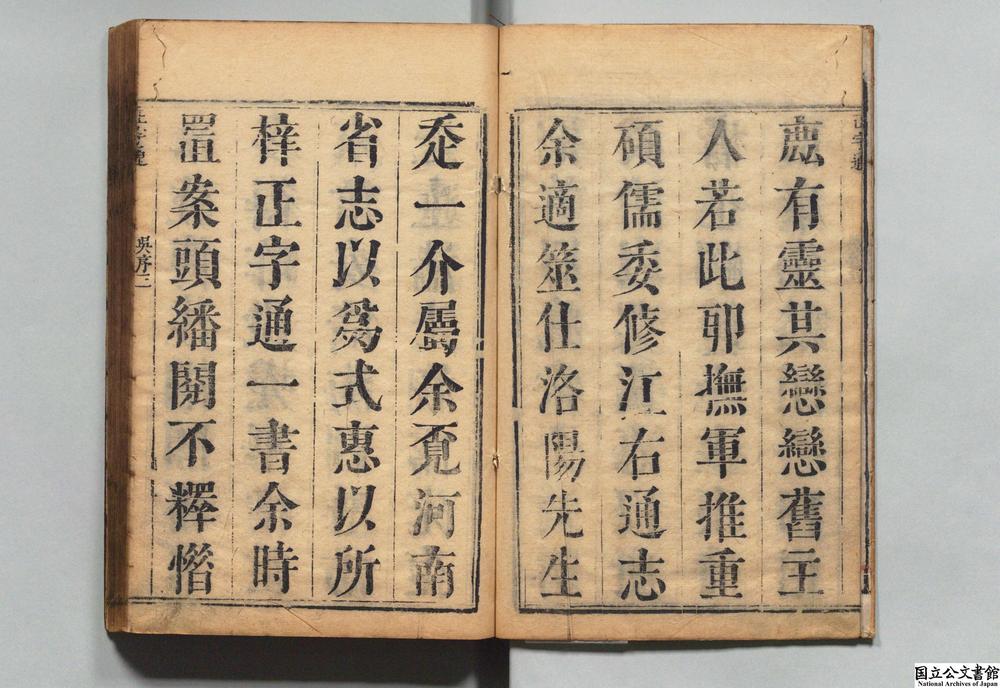 正字通
鹿有靈其戀戀舊主
人若此耶撫軍推重
碩儒委修江右通志
余適筮仕洛陽先生
走一介屬余覓河南
省志以爲式惠以所
梓正字通一書余時
置案頭繙閱不釋
正字通 吳序三
国立公文書館
National Archives of Japan